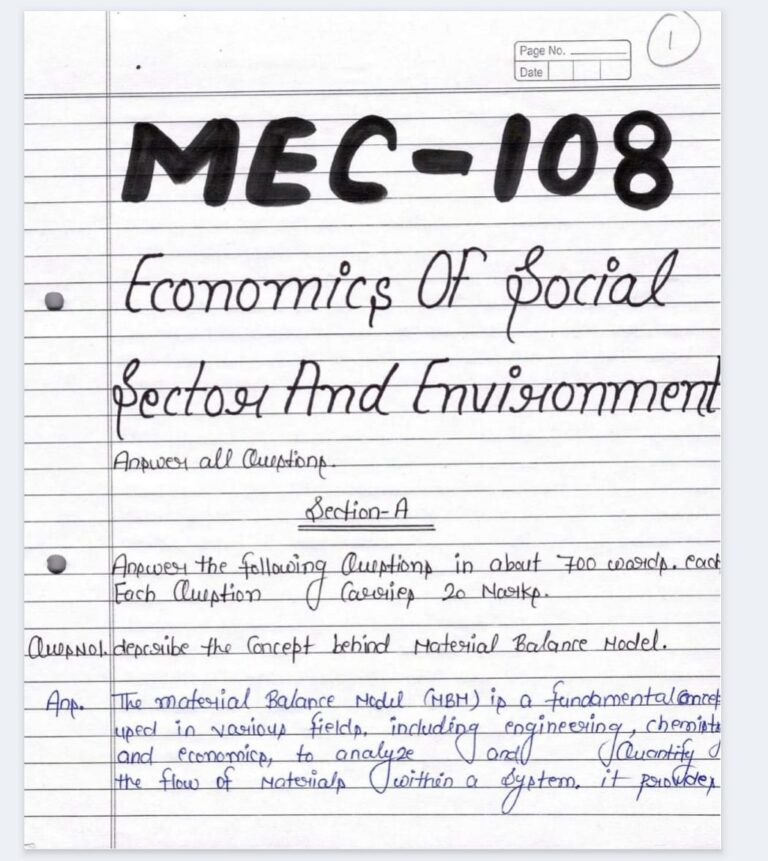 Page No.
Date
1
MEC-108
Economics Of Social
Sector And Environment
Answer all Questions.
Section-A
Answer the following Questions in about 700 words. each
Each Question Carries 20 Marks.
Ques No1. describe the Concept behind Material Balance Model.
Ans. The material Balance Model (MBM) is a fundamental Concep
used in various fields, including engineering, chemist
and economics, to analyze and Quantify
the flow of Materials within a System. it provides